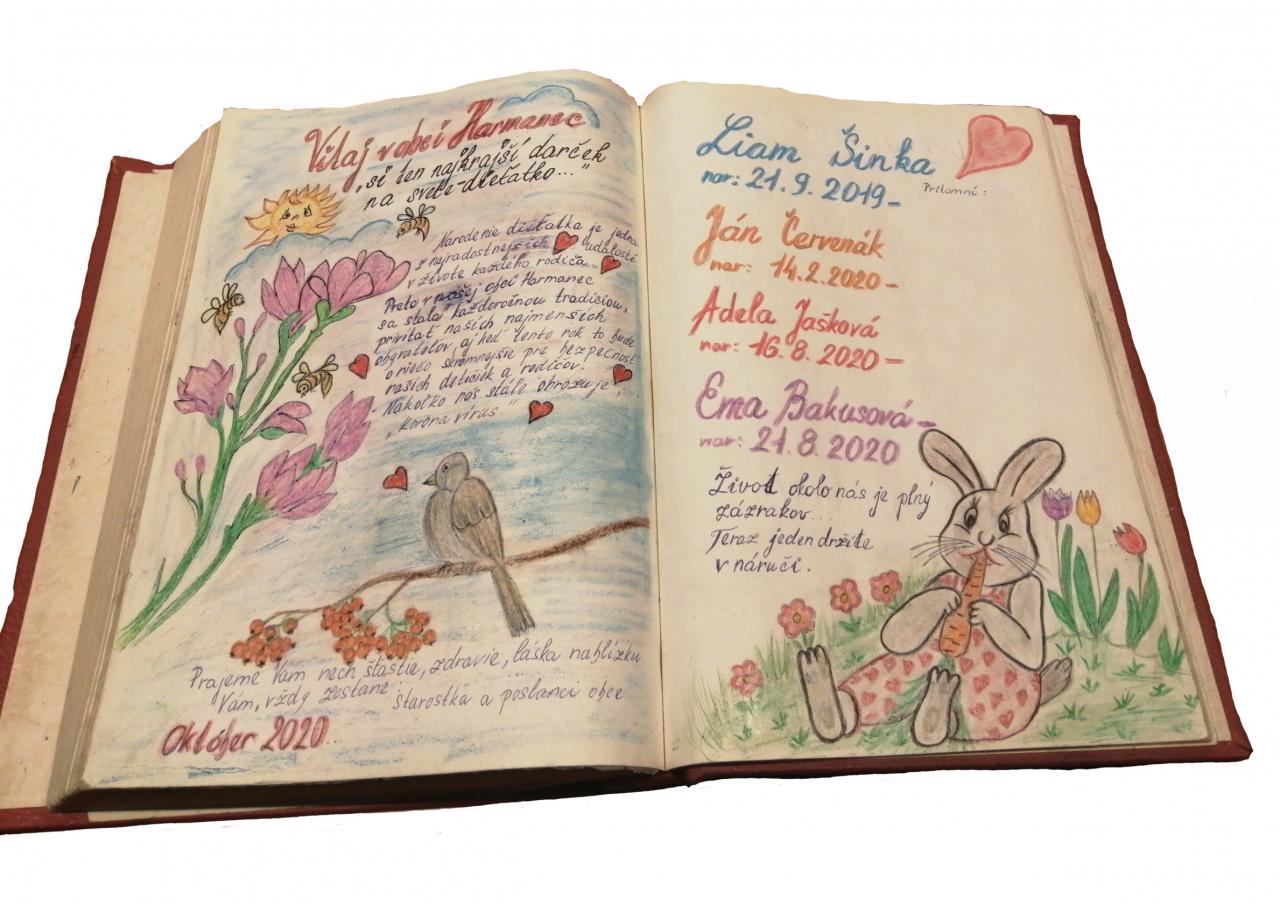 Vitaj v obci Harmanec
„si ten najkrajší darček
na svete-dieťatko..."
Narodenie dieťatka je jedna
z najradostnejších udalostí
v živote každého rodiča.
Preto v našej obci Harmanec
sa stala každoročnou tradíciou,
privítať našich najmenších
obyvateľov aj keď tento rok to bude
o niečo skromnejšie pre bezpečnosť
našich detičiek a rodičov.
Nakoľko nás stále ohrozuje,
„Korona vírus."
Prajeme Vám nech šťastie, zdravie, láska nablízku
Vám, vždy zostane
starostka a poslanci obce
Október 2020
Liam Šinka
nar: 21. 9. 2019-
Prítomní:
Ján Červenák
nar: 14.2.2020-
Adela Jašková
nar: 16.8.2020-
Ema Bakusová-
nar: 21.8.2020
Život okolo nás je plný
zázrakov...
Teraz jeden držíte
v náručí.